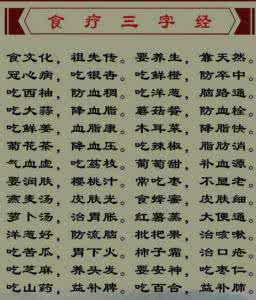 食疗三字经
食文化，祖先传。要养生，靠天然。
冠心病，吃银杏。吃鲜橙，防卒中。
吃西柚，防血稠。吃洋葱，脑路通。
吃大蒜，降血脂。蘑菇餐，防血栓。
吃鲜姜，血脂康。木耳菜，降脂快。
菊花茶，降血压。吃辣椒，脂肪消。
气血虚，吃荔枝。葡萄甜，补血源。
要润肤，樱桃汁。常吃枣，不显老。
燕麦汤，皮肤光。食蜂蜜，皮肤细。
萝卜汤，治胃胀。红薯蒸，大便通。
洋葱好，防流脑。枇杷果，治咳嗽。
吃苦瓜，胃下火。柿子霜，治口疮。
吃芝麻，养头发。要安神，吃枣仁。
吃山药，益补脾。吃百合，益补肺。